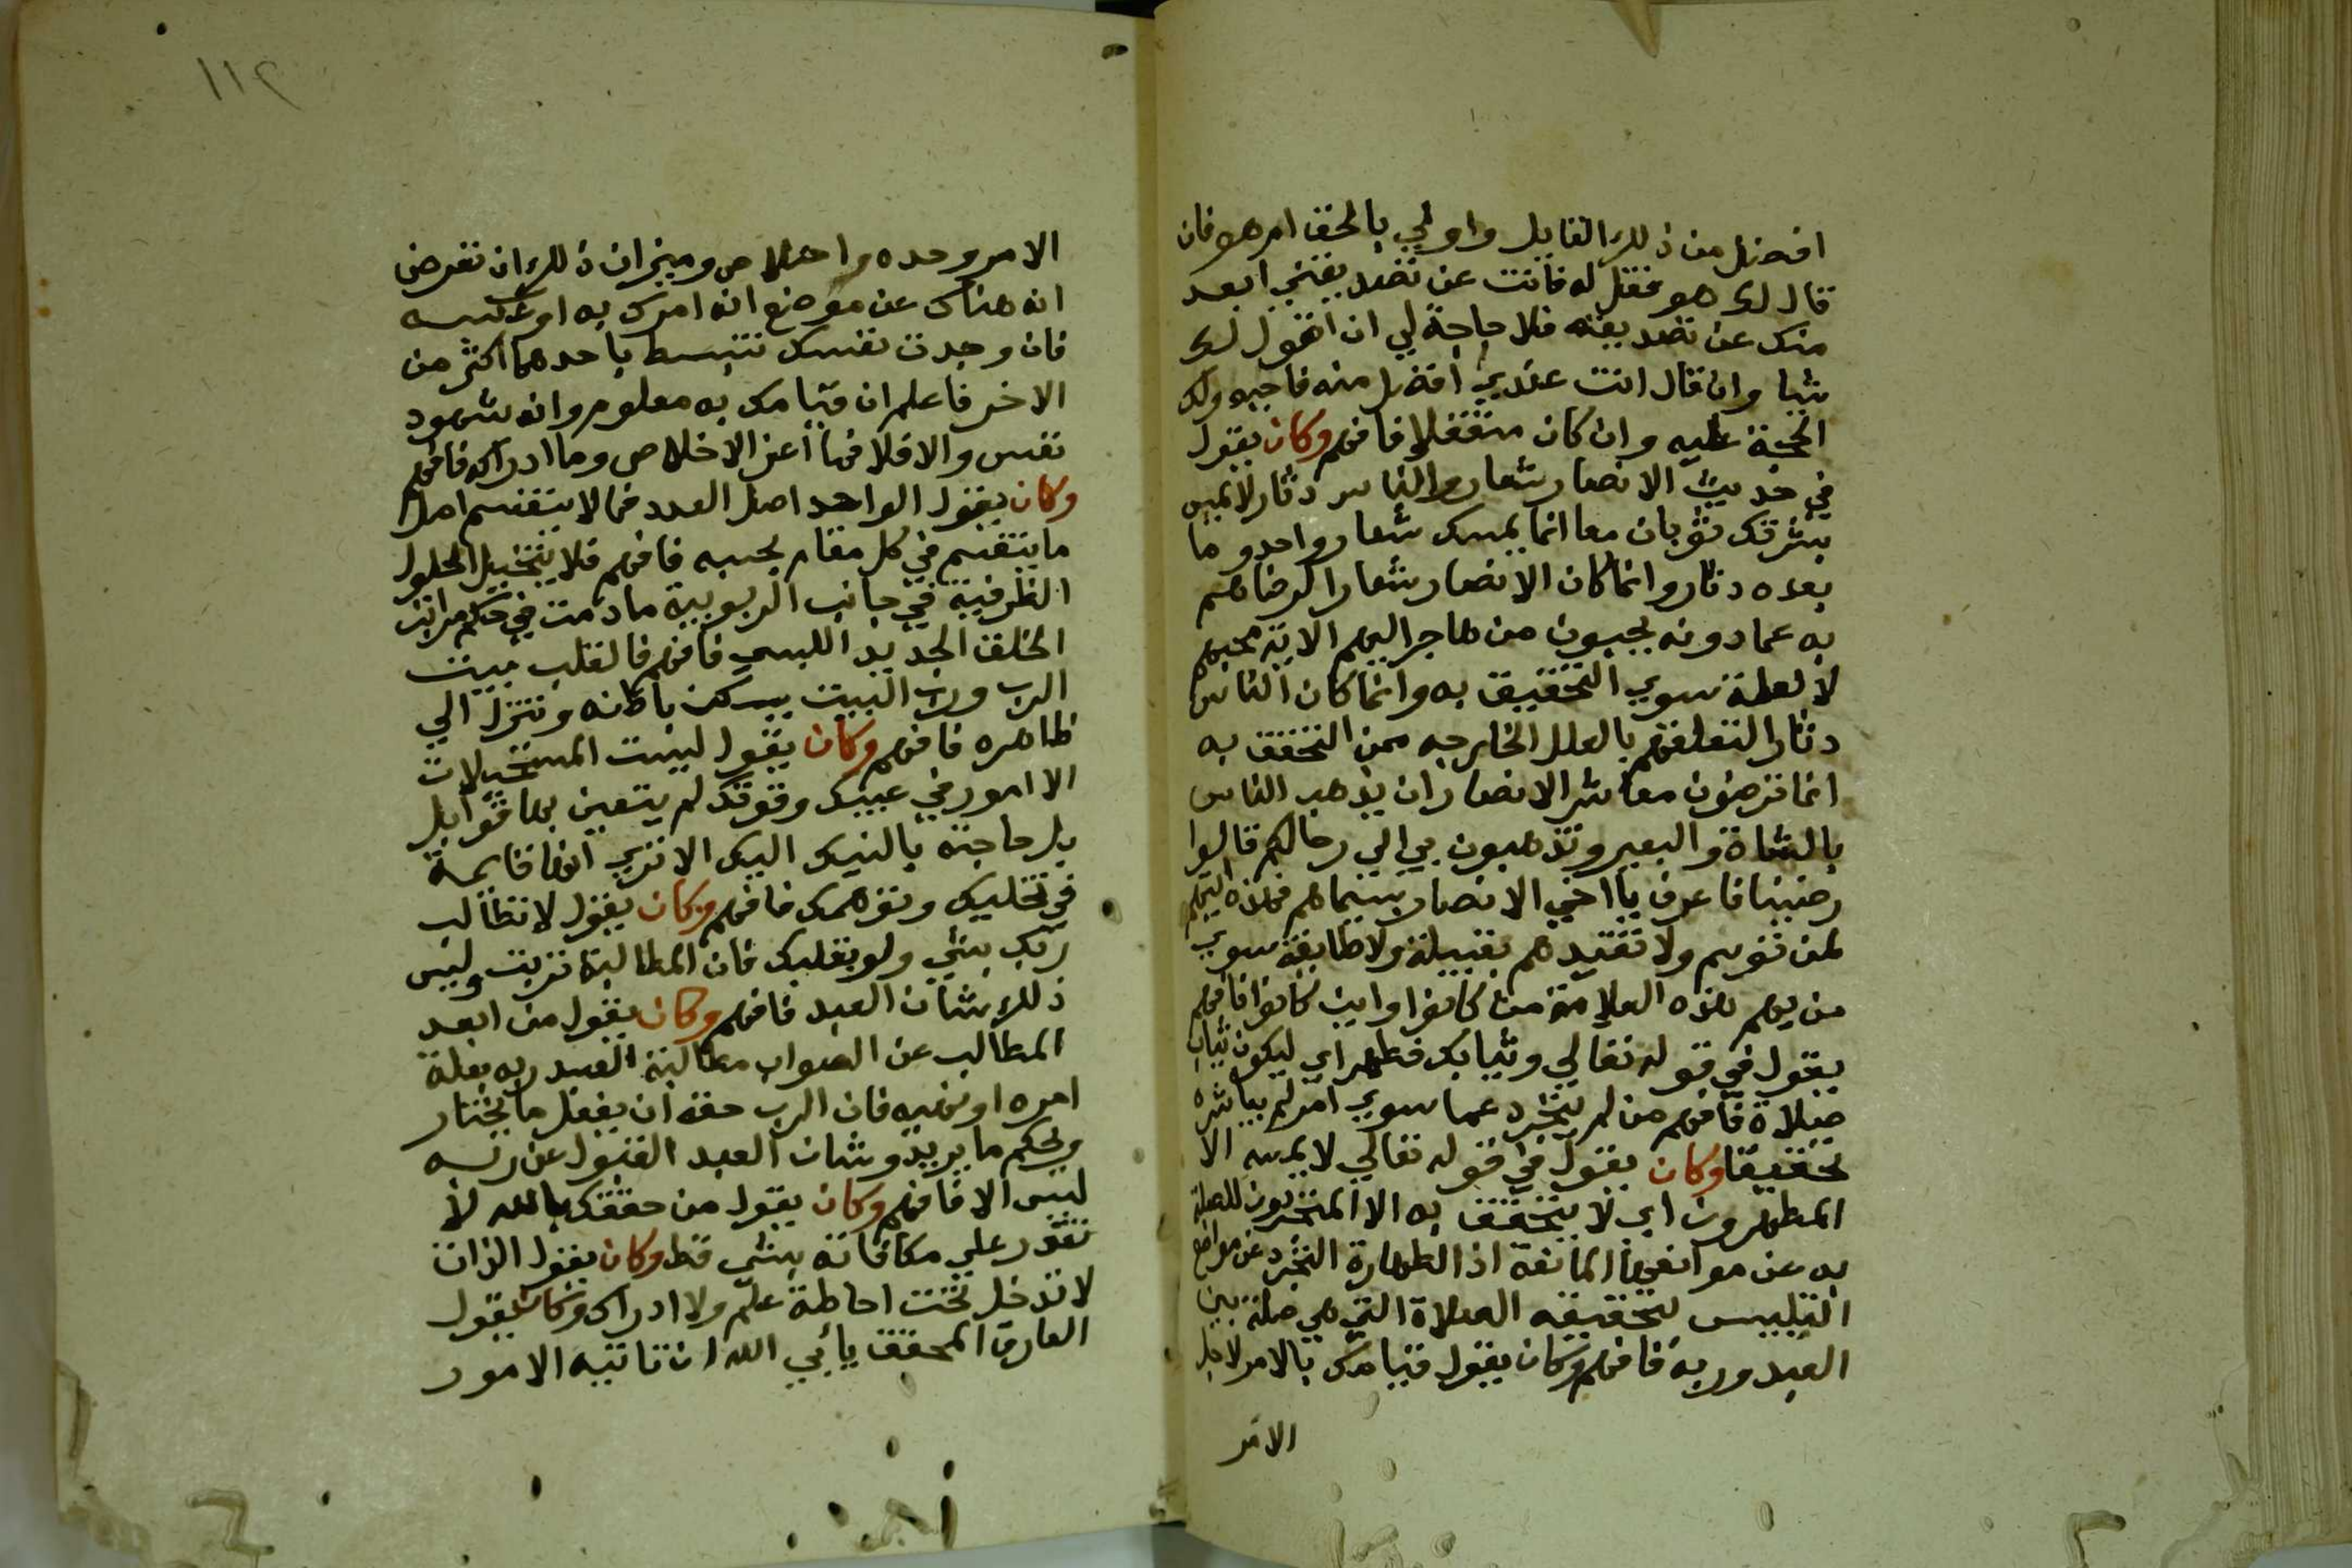 افضل من ذلك القايل واولي بالحق امر هو فان
قال لك هو فقل له فانت عن تصديقني ابعد
منك عن تصديقه فلا حاجة لي ان اقول لك
شيا وان قال انت عندي افضل منه فاجبه ولك
الحجة عليه وان كان متغفلا فافهم وكان يقول
في حديث الانصار شعار والناس دثار لا يمس
بشرتك ثوبان معا انما يمسك شعار واحد وما
بعده دثار وانما كان الانصار شعارا لرضاهم
به عما دونه يحبون من هاجر اليهم الاية محبهم
لا لعلة سوي التحقيق به وانما كان الناس
دثارا لتعلقهم بالعلل الخارجه عن التحقق به
انما ترضون معاشر الانصار ان يذهب الناس
بالشاة والبعير وتذهبون بي الي رحالكم قالوا
رضينا فاعرف يا اخي الانصار بسيماهم فهذه اليهم
لمن توسم ولا تقيدهم بقبيلة ولا طايفة سوي
من بهم هذه العلامة من كانوا واين كانوا فافهم
يقول في قوله تعالي وثيابك فطهر اي ليكون ثياب
صلاة فافهم من لم يتجرد عما سوي امر لم يباشره
تحقيقا وكان يقول في قوله تعالي لا يمسه الا
المطهرون اي لا يتحقق به الا المتجردون للصلة
به عن موانعها المانعة اذ الطهارة التجرد عن موانع
التلبيس لتحقيقه الصلاة التي هي صلة بين
العبد وربه فافهم وكان يقول قيامك بالامر لاجل
الامر
١١٢
الامر وحده واخلاص وميزان ذلك ان تفرض
انه هناك عن موضع انه امرك به او عكسه
فان وجدت نفسك تنبسط باحدهما اكثر من
الاخر فاعلم ان قيامك به معلوم وانه شهود
نفس والا فلا فما اعز الاخلاص وما ادراك فافهم
وكان يقول الواحد اصل العدد فما لا ينقسم اصل
ما ينقسم في كل مقام بحسبه فافهم فلا يتخيل الحلول
الظرفية في جانب الربوبية ما دمت في حكم مراتب
الخلق الجديد اللبسي فافهم فالقلب بيت
الرب ورب البيت يسكن باطنه وتنزل الي
ظاهره فافهم وكان يقول ليست المستحيلات
الا امور في عينك وقوتك لم يتعين بها قوابل
بل حاجته بالنيك اليك الا تري انها قايمة
في تخليك وتوهمك فافهم وكان يقول لا تطالب
ربك بشي ولو بقلبك فان المطالبة تربت وليس
ذلك شان العبد فافهم وكان يقول من ابعد
المطالب عن الصواب مطالبة العبد ربه بعلة
امره او نهيه فان الرب حقه ان يفعل ما يختار
ويحكم ما يريد وشان العبد القبول عن ربه
ليس الا فافهم وكان يقول من حققك بالله لا
تقدر علي مكافاته بشي قط وكان يقول الذات
لا تدخل تحت احاطة علم ولا ادراك وكان يقول
العارف المحقق يأبي الله ان تاتيه الامور